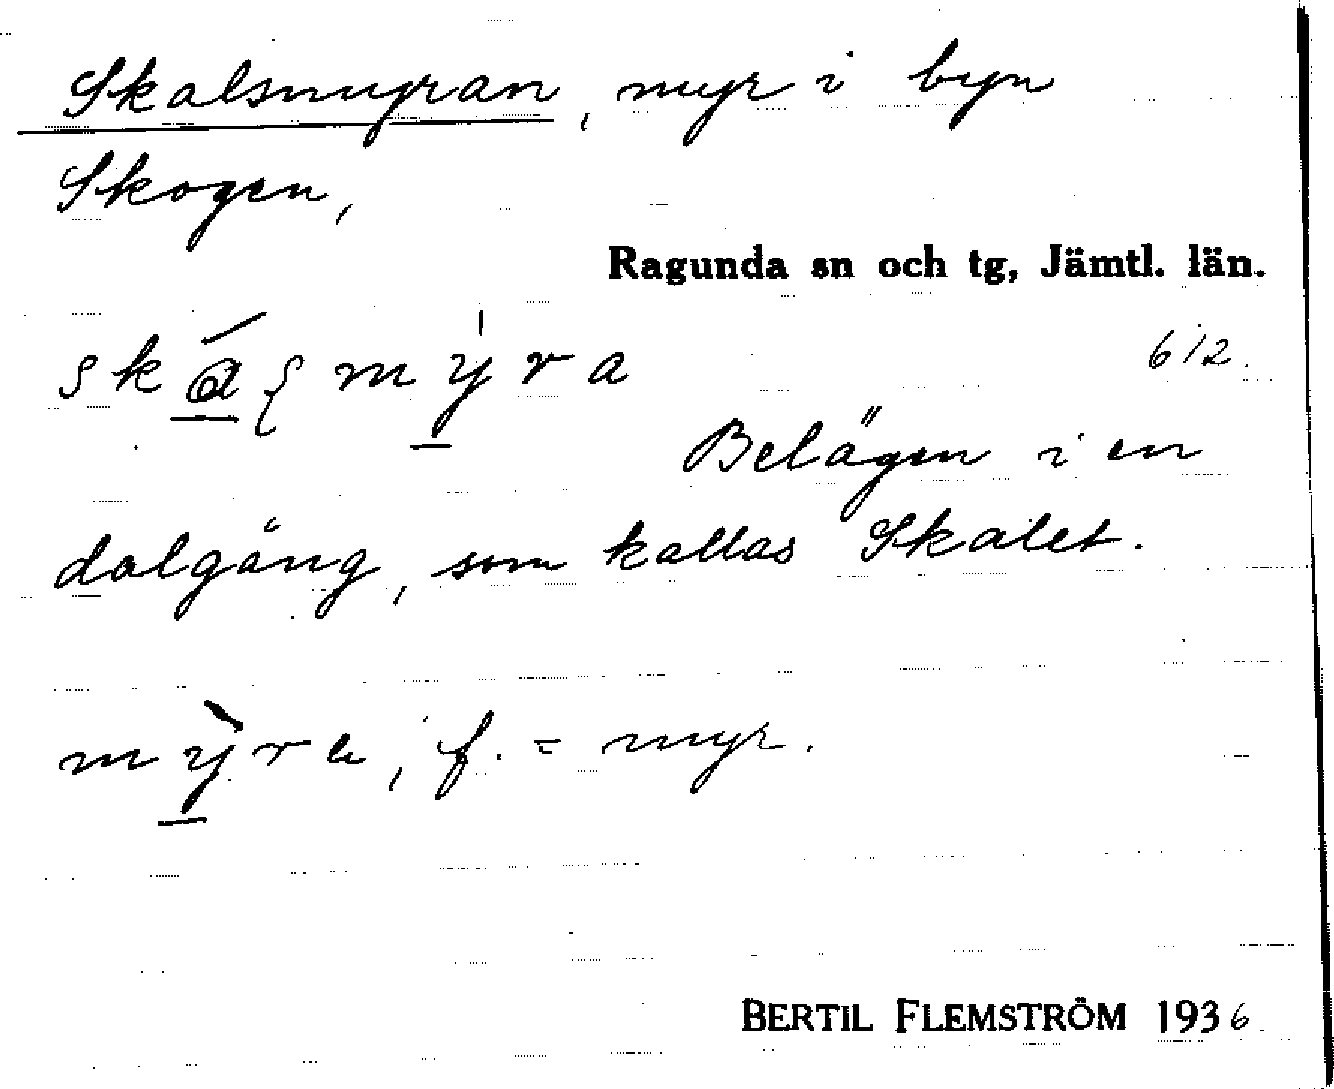 Skalsmyran, myr i byn
Skogen,
Ragunda sn och tg, Jämtl. län.
612.
Belägen i en
dalgång, som kallas Skalet.
myra, f. = myr.
BERTIL FLEMSTRÖM 1936